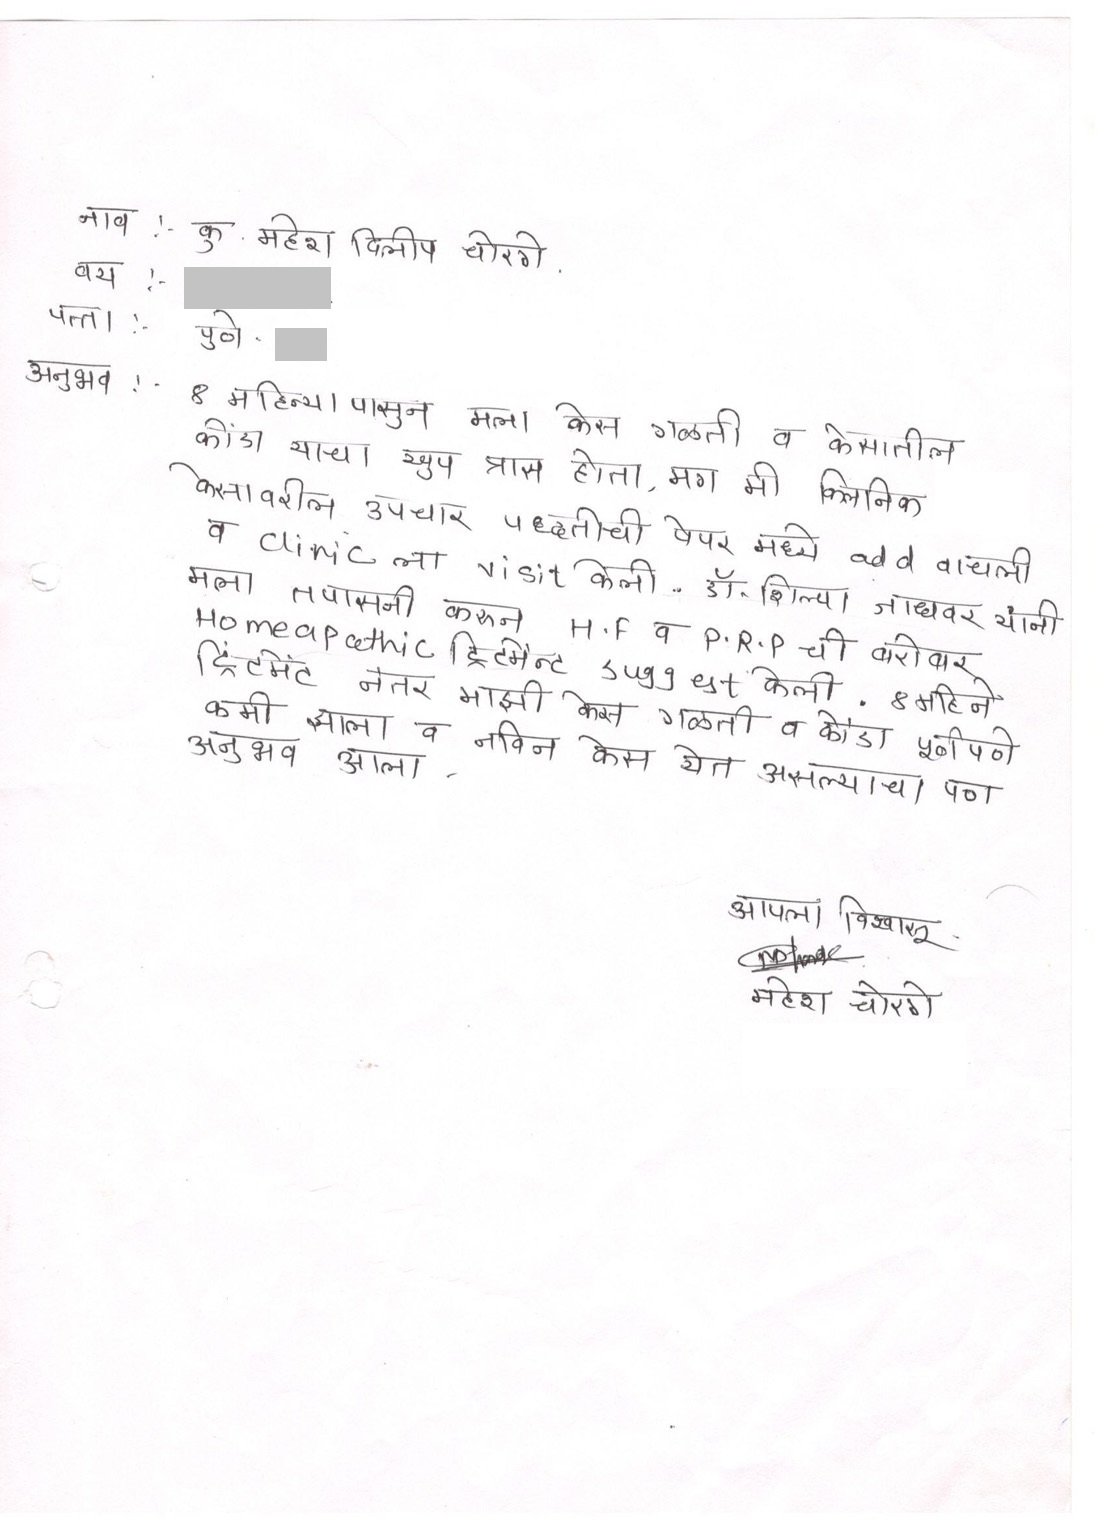 नाव :- कु. महेश दिलीप चोरगे.
वय :-
पत्ता :- पुणे.
अनुभव :- 8 महिन्या पासुन मला केस गळती व केसातील
कोंडा याचा खुप त्रास होता, मग मी क्लिनिक
केसावरील उपचार पध्दतीची पेपर मध्ये add वाचली
व clinic ला visit केली. डॉ. शिल्पा जाधवर यांनी
मला तपासनी करून H.F व P.R.P ची बरोबर
Homeapathic ट्रिटमेन्ट suggest केली. 8 महिने
ट्रिंटमेंट नंतर माझी केस गळती व कोंडा पूर्णपणे
कमी झाला व नविन केस येत असल्याचा पण
अनुभव आला.
आपला विश्वासू
महेश चोरगे